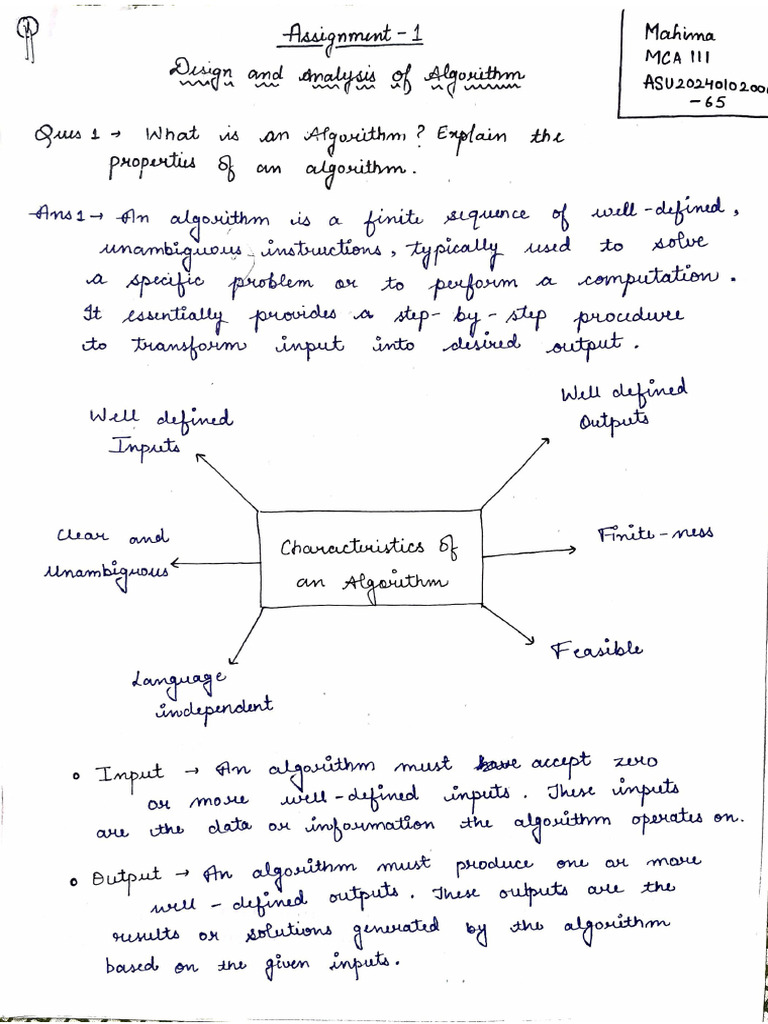 Assignment - 1
Mahima
MCA III
Design and Analysis of Algorithm
ASU2024010200
-65
Ques 1 → What is an Algorithm? Explain the
properties of an algorithm.
Ans 1 → An algorithm is a finite sequence of well-defined,
unambiguous instructions, typically used to solve
a specific problem or to perform a computation.
It essentially provides a step-by-step procedure
to transform input into desired output.
Well defined
Inputs
Well defined
Outputs
Clear and
Unambiguous
Characteristics of
an Algorithm
Finite-ness
Language
independent
Feasible
• Input → An algorithm must accept zero
or more well-defined inputs. These inputs
are the data or information the algorithm operates on.
• Output → An algorithm must produce one or more
well-defined outputs. These outputs are the
results or solutions generated by the algorithm
based on the given inputs.